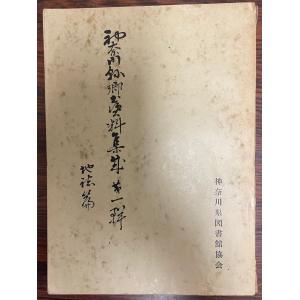 神奈川縣郷土資料集成 第一輯
地誌篇
神奈川県図書館協会